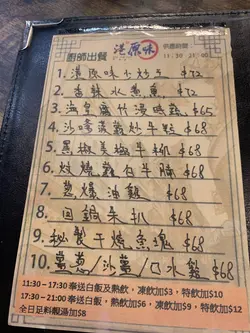 廚師出餐 港原味 供應時間
11:30-21:00
1. 港原味小炒王 $72
2. 香辣水煮魚 $72
3. 海皇 $65
4. 沙嗲 炒牛 $68
5. 黑椒 牛柳 $68
6. 牛腩 $68
7. 蔥爆油雞 $68
8. 回鍋 $68
9. 秘製干燒 $68
10. /沙薑/口水雞 $68
11:30 - 17:30 奉送白飯及熱飲，凍飲加$3，特飲加$10
17:30 - 21:00 奉送白飯，熱飲加$6，凍飲加$9，特飲加$12
全日足料靚湯加$8